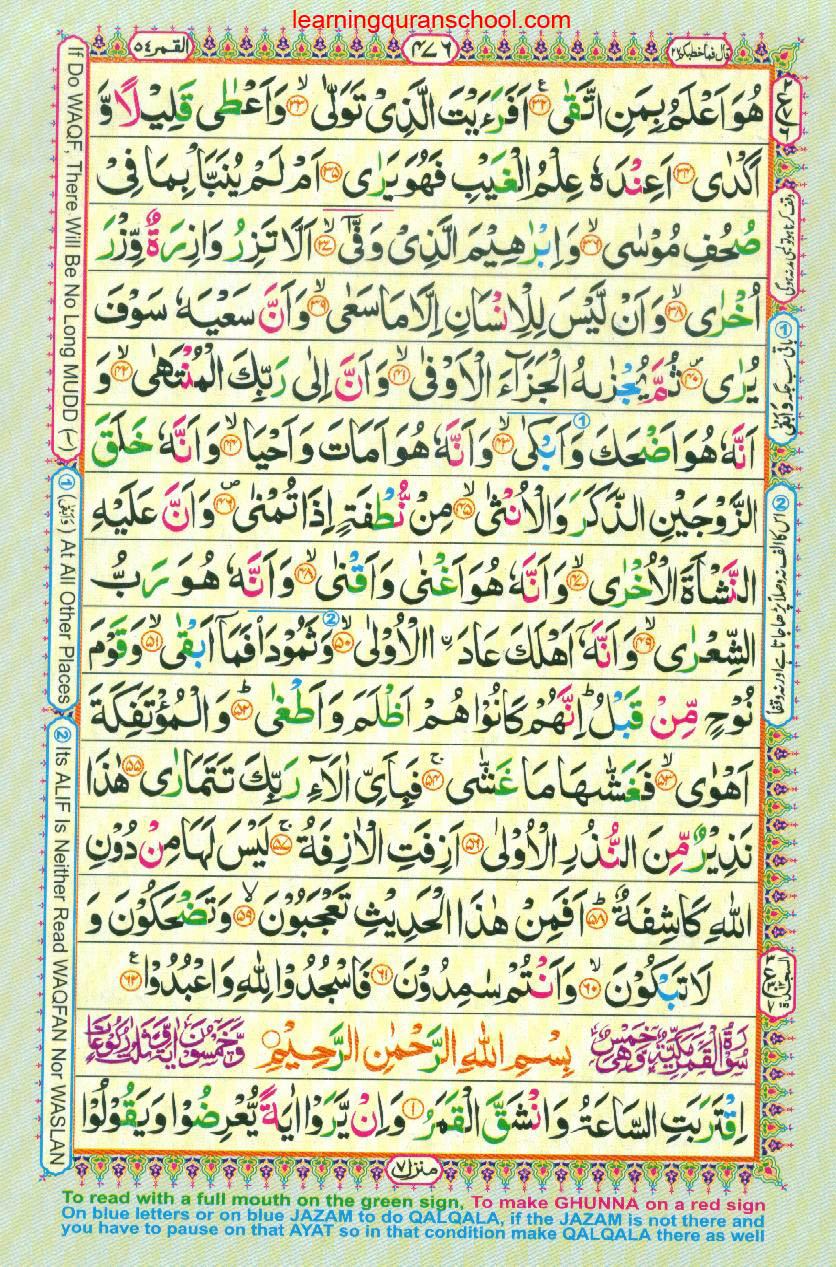 learningquranschool.com
القمر ٥٤
٤٧٦
قال فما خطبكم ٢٧
هُوَ اَعْلَمُ بِمَنِ اتَّقٰى ﴿٣٢﴾ اَفَرَءَيْتَ الَّذِيْ تَوَلّٰى ﴿٣٣﴾ وَاَعْطٰى قَلِيْلًا وَّ
اَكْدٰى ﴿٣٤﴾ اَعِنْدَهٗ عِلْمُ الْغَيْبِ فَهُوَ يَرٰى ﴿٣٥﴾ اَمْ لَمْ يُنَبَّاْ بِمَا فِيْ
صُحُفِ مُوْسٰى ﴿٣٦﴾ وَاِبْرٰهِيْمَ الَّذِيْ وَفّٰىٓ ﴿٣٧﴾ اَلَّا تَزِرُ وَازِرَةٌ وِّزْرَ
اُخْرٰى ﴿٣٨﴾ وَاَنْ لَّيْسَ لِلْاِنْسَانِ اِلَّا مَا سَعٰى ﴿٣٩﴾ وَاَنَّ سَعْيَهٗ سَوْفَ
يُرٰى ﴿٤٠﴾ ثُمَّ يُجْزٰىهُ الْجَزَآءَ الْاَوْفٰى ﴿٤١﴾ وَاَنَّ اِلٰى رَبِّكَ الْمُنْتَهٰى ﴿٤٢﴾ وَ
اَنَّهٗ هُوَ اَضْحَكَ وَاَبْكٰى ﴿٤٣﴾ وَاَنَّهٗ هُوَ اَمَاتَ وَاَحْيَا ﴿٤٤﴾ وَاَنَّهٗ خَلَقَ
الزَّوْجَيْنِ الذَّكَرَ وَالْاُنْثٰى ﴿٤٥﴾ مِنْ نُّطْفَةٍ اِذَا تُمْنٰى ﴿٤٦﴾ وَاَنَّ عَلَيْهِ
النَّشْاَةَ الْاُخْرٰى ﴿٤٧﴾ وَاَنَّهٗ هُوَ اَغْنٰى وَاَقْنٰى ﴿٤٨﴾ وَاَنَّهٗ هُوَ رَبُّ
الشِّعْرٰى ﴿٤٩﴾ وَاَنَّهٗٓ اَهْلَكَ عَادَا ۨالْاُوْلٰى ﴿٥٠﴾ وَثَمُوْدَا۟ فَمَآ اَبْقٰى ﴿٥١﴾ وَقَوْمَ
نُوْحٍ مِّنْ قَبْلُ اِنَّهُمْ كَانُوْا هُمْ اَظْلَمَ وَاَطْغٰى ﴿٥٢﴾ وَالْمُؤْتَفِكَةَ
اَهْوٰى ﴿٥٣﴾ فَغَشّٰىهَا مَا غَشّٰى ﴿٥٤﴾ فَبِاَيِّ اٰلَآءِ رَبِّكَ تَتَمَارٰى ﴿٥٥﴾ هٰذَا
نَذِيْرٌ مِّنَ النُّذُرِ الْاُوْلٰى ﴿٥٦﴾ اَزِفَتِ الْاٰزِفَةُ ﴿٥٧﴾ لَيْسَ لَهَا مِنْ دُوْنِ
اللّٰهِ كَاشِفَةٌ ﴿٥٨﴾ اَفَمِنْ هٰذَا الْحَدِيْثِ تَعْجَبُوْنَ ﴿٥٩﴾ وَتَضْحَكُوْنَ وَ
لَا تَبْكُوْنَ ﴿٦٠﴾ وَاَنْتُمْ سٰمِدُوْنَ ﴿٦١﴾ فَاسْجُدُوْا لِلّٰهِ وَاعْبُدُوْا ﴿٦٢﴾
سُوْرَةُ الْقَمَرِ مَكِّيَّةٌ وَّهِيَ خَمْسٌ بِسْمِ اللّٰهِ الرَّحْمٰنِ الرَّحِيْمِ وَّخَمْسُوْنَ اٰيَةً وَّثَلٰثُ رُكُوْعَاتٍ
اِقْتَرَبَتِ السَّاعَةُ وَانْشَقَّ الْقَمَرُ ﴿١﴾ وَاِنْ يَّرَوْا اٰيَةً يُّعْرِضُوْا وَيَقُوْلُوْا
منزل ٧
If Do WAQF, There Will Be No Long MUDD (~)
① At All Other Places
② Its ALIF Is Neither Read WAQFAN Nor WASLAN
To read with a full mouth on the green sign, To make GHUNNA on a red sign
On blue letters or on blue JAZAM to do QALQALA, if the JAZAM is not there and
you have to pause on that AYAT so in that condition make QALQALA there as well